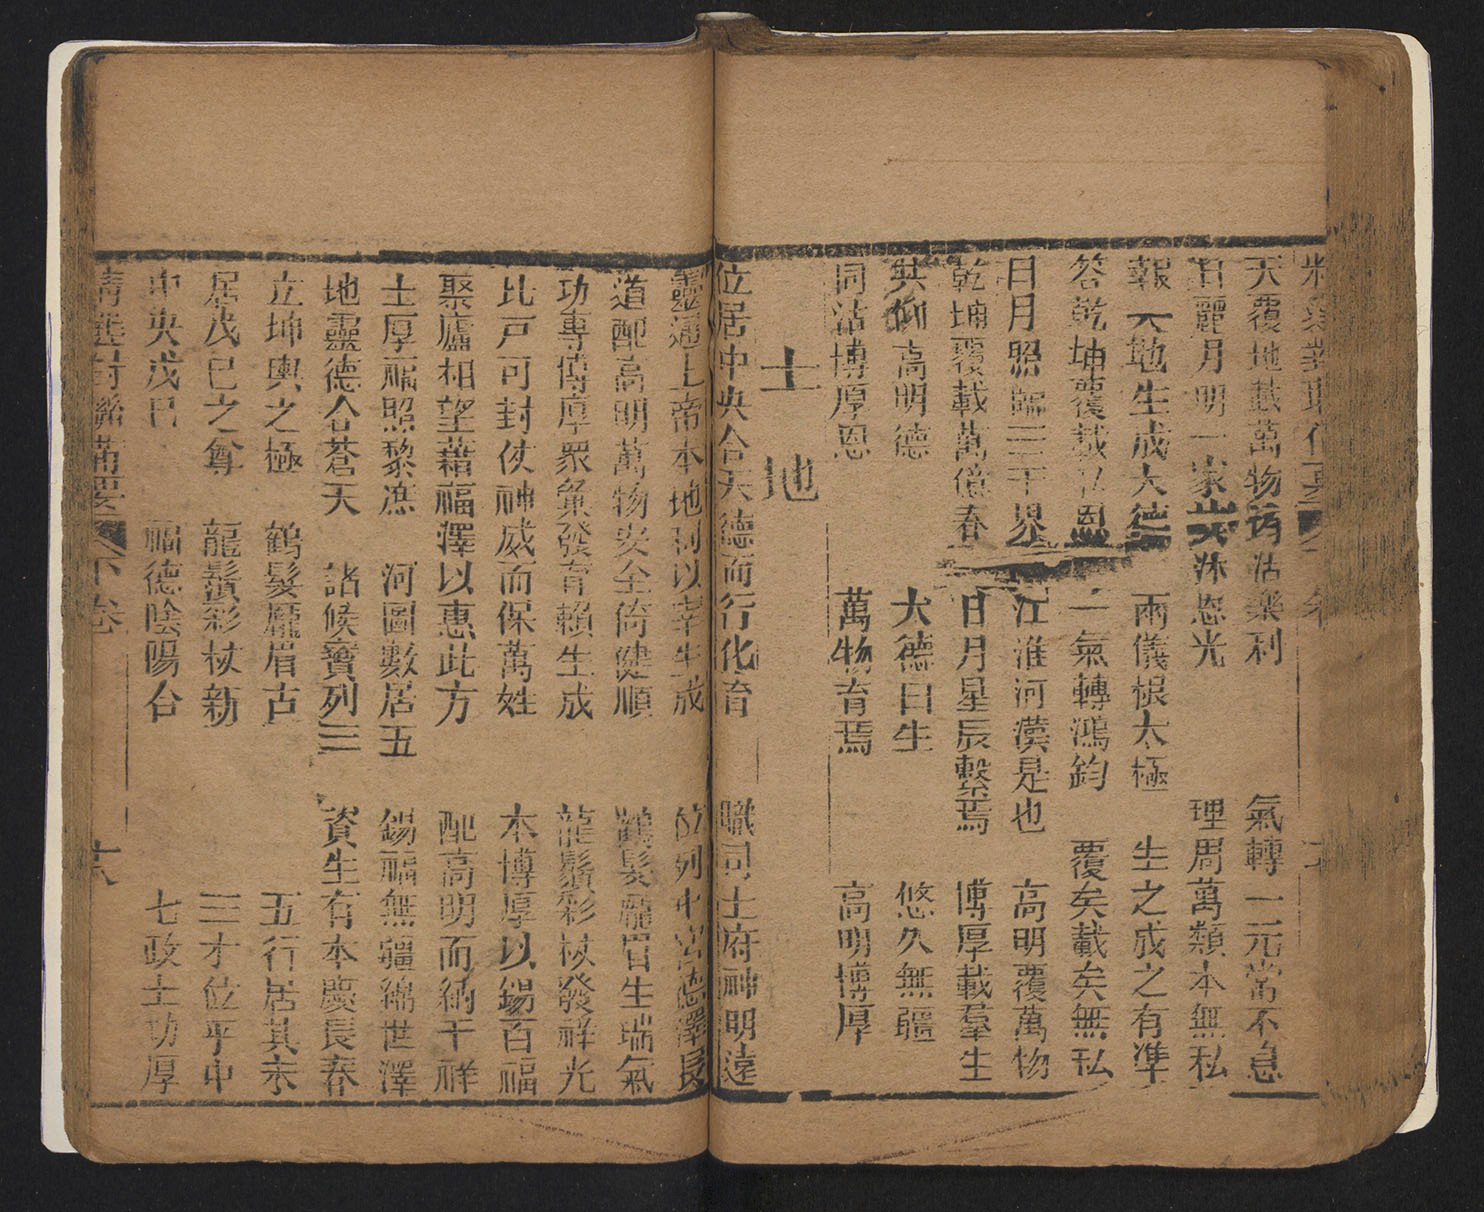 天覆地載萬物沾樂利 氣轉一元當不息
日麗月明一家共沐恩光 理周萬類本無私
報天地生成大德 兩儀根太極 生之成之有準
答乾坤覆載弘恩 一氣轉鴻鈞 覆矣載矣無私
日月照臨三千界 江淮河漢是也 高明覆萬物
乾坤覆載萬億春 日月星辰繫焉 博厚載羣生
共仰高明德 大德曰生 悠久無疆
同沾博厚恩 萬物育焉 高明博厚
土地
位居中央合天德而行化育 職司土府神明遠
靈通上帝本地利以宰生成 位列中宮德澤長
道配高明萬物安全倚健順 鶴髮龐眉生瑞氣
功專博厚眾彙發育賴生成 龍鬚彩杖發祥光
比戸可封仗神威而保萬姓 本博厚以錫百福
聚廬相望藉福澤以惠此方 配高明而納千祥
土厚福照黎庶 河圖數居五 錫福無疆綿世澤
地靈德合蒼天 諸候寶列三 資生有本慶長春
立坤輿之極 鶴髮龐眉古 五行居其末
居戊已之尊 龍鬚彩杖新 三才位乎中
中央戊已 福德陰陽合 七政土功厚
精選對聯備要 下卷 十六